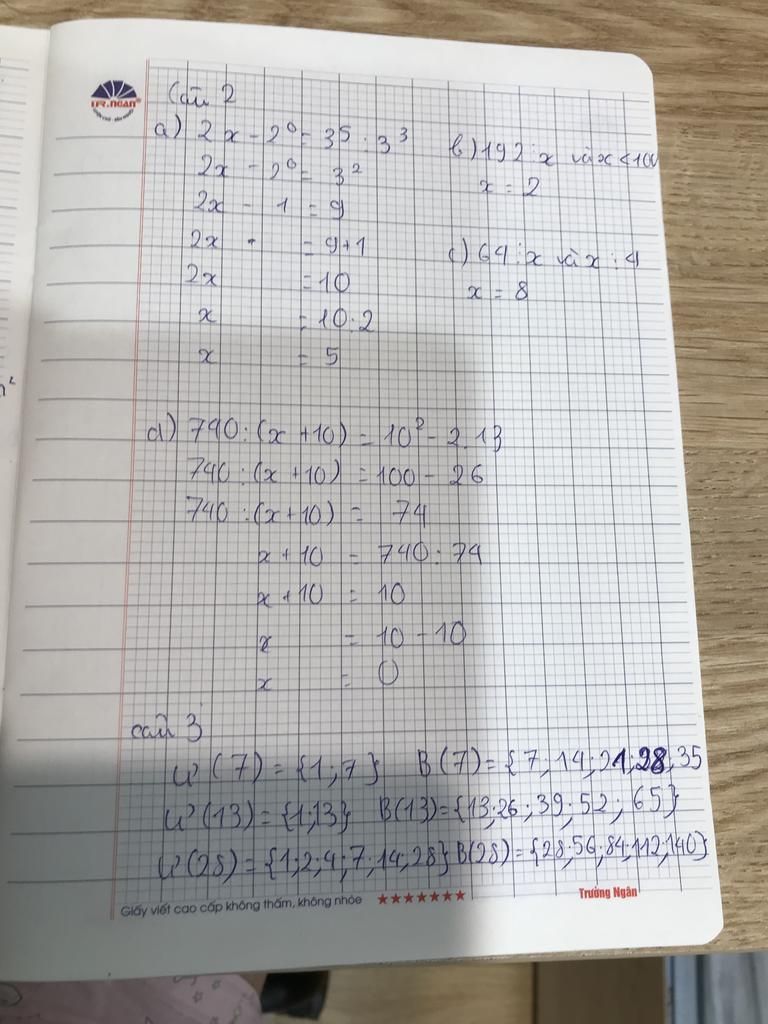 TR.NGAN
Câu 2
a) 2x - 2⁰ = 3⁵ : 3³
2x - 2⁰ = 3²
2x - 1 = 9
2x = 9+1
2x = 10
x = 10:2
x = 5
b) 192 ⋮ x và x < 100
x = 2
c) 64 ⋮ x và x ⋮ 4
x = 8
d) 740 : (x + 10) = 10² - 2.13
740 : (x + 10) = 100 - 26
740 : (x + 10) = 74
x + 10 = 740 : 74
x + 10 = 10
x = 10 - 10
x = 0
câu 3
Ư(7) = {1;7} B(7) = {7;14;21;28;35
Ư(13) = {1;13} B(13) = {13;26;39;52;65}
Ư(28) = {1;2;4;7;14;28} B(28) = {28;56;84;112;140}
Giấy viết cao cấp không thấm, không nhòe ★★★★★★★ Trường Ngân